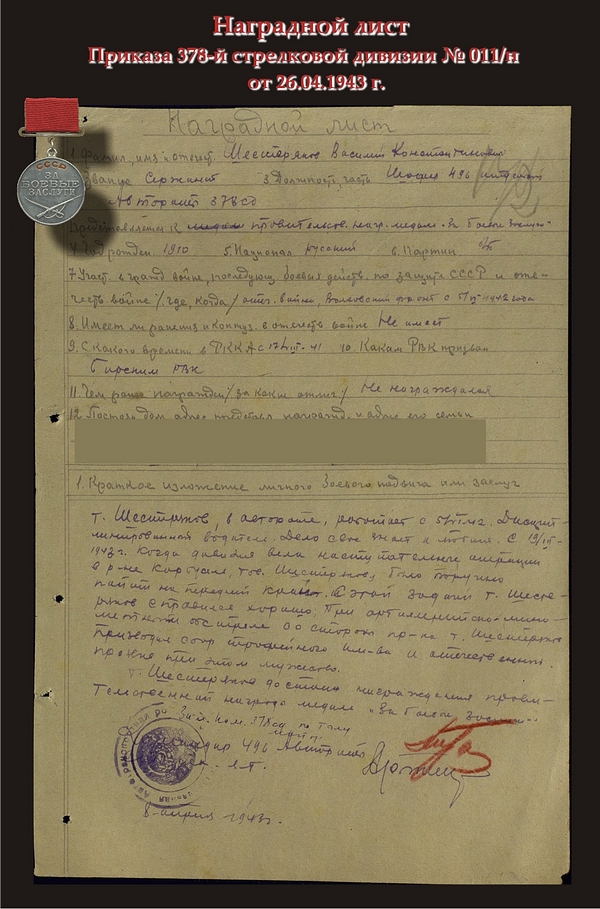 Наградной лист
Приказа 378-й стрелковой дивизии № 011/н
от 26.04.1943 г.
Наградной лист
1. Фамил., имя и отчест. Шестеряков Василий Константинович
Звание Сержант 3 Должность, часть Шофер 496
Авторота 378сд
СССР
ЗА
БОЕВЫЕ
ЗАСЛУГИ
Представляется к правительств. нагр. медали "За боевые заслуги"
4. Год рожден. 1910 5. Национал русский 6. Партийн. б/п
7. Участ. в гражд войне, последующ. боевых действ. по защите СССР и отече-
честв войне /где, когда/ отеч. война, Волховский фронт с 1942 года
8. Имеет ли ранения и контуз. в отечеств войне Не имеет
9. С какого времени в РККА с 41 10 Каким РВК призван
Бирским РВК
11. Чем ранее награжден /за какие отлич./ Не награждался
12. Постоян дом адрес награжд. и адрес его семьи
1. Краткое изложение личного боевого подвига или заслуг
т. Шестеряков, в автороте, работает с Дисцип-
линированный водитель. Дело свое знает и любит. С
1943 г. Когда дивизия вела наступательные операции
в р-не Карбусель, тов. Шестерякову было поручено
на передний край. С этой задачей т. Шесте-
ряков справился хорошо. При артиллерийско-мино-
метном обстреле со стороны пр-ка т. Шестеряков
производил сбор трофейного им-ва и отечественн.
проявив при этом мужество.
т. Шестеряков достоин награждения правит-
тельственной награды медали "За боевые заслуги"
Зам. ком. 378сд по тылу
Командир 496 Автороты
8 апреля 1943г.